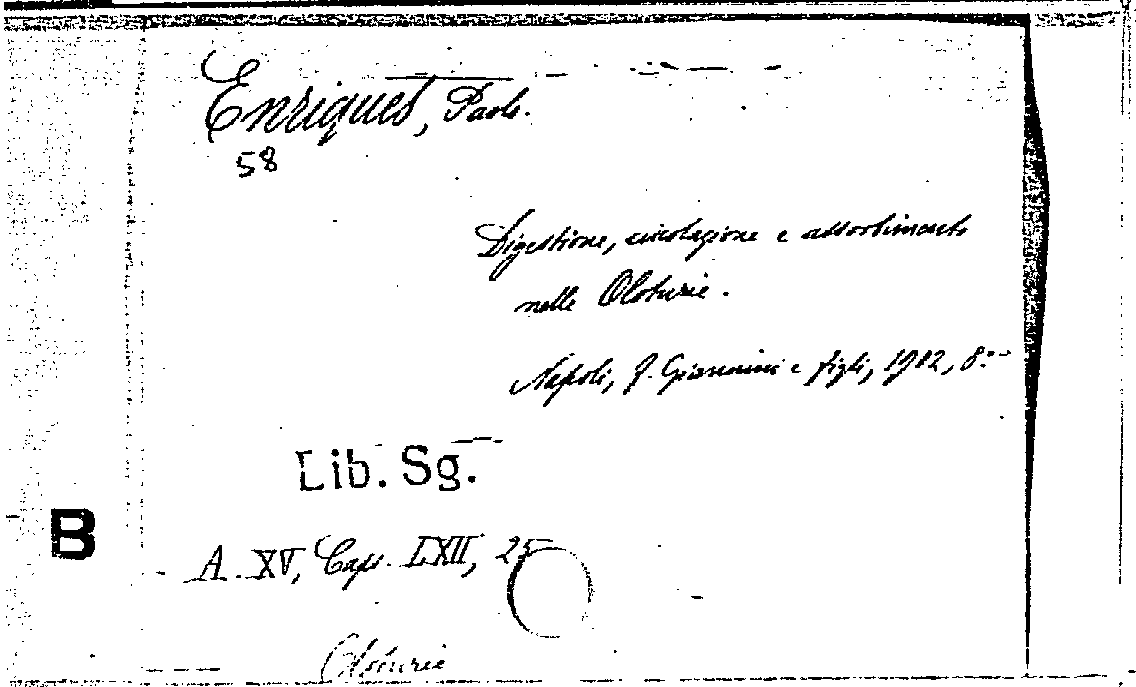 Enriques, Paolo.
58
Digestione, circolazione e assorbimento
nelle Oloturie.
Napoli, F. Giannini e figli, 1902, 8.°
Lib. Sg.
B
A. XV, Caps. LXII, 25
Oloturie